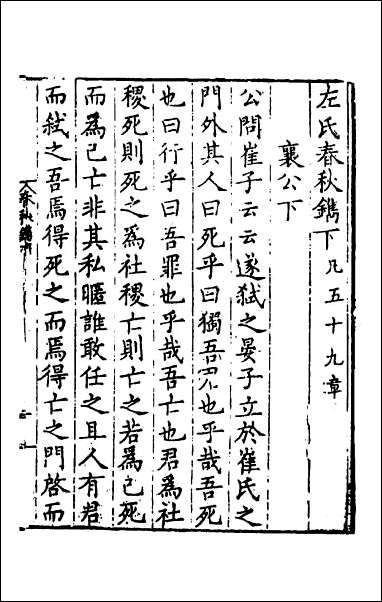 左氏春秋鐫下凡五十九章
襄公下
公問崔子云云遂弑之晏子立於崔氏之
門外其人曰死乎曰獨吾君也乎哉吾死
也曰行乎曰吾罪也乎哉吾亡也君爲社
稷死則死之爲社稷亡則亡之若爲己死
而爲己亡非其私暱誰敢任之且人有君
而弑之吾焉得死之而焉得亡之門啓而
春秋鐫下